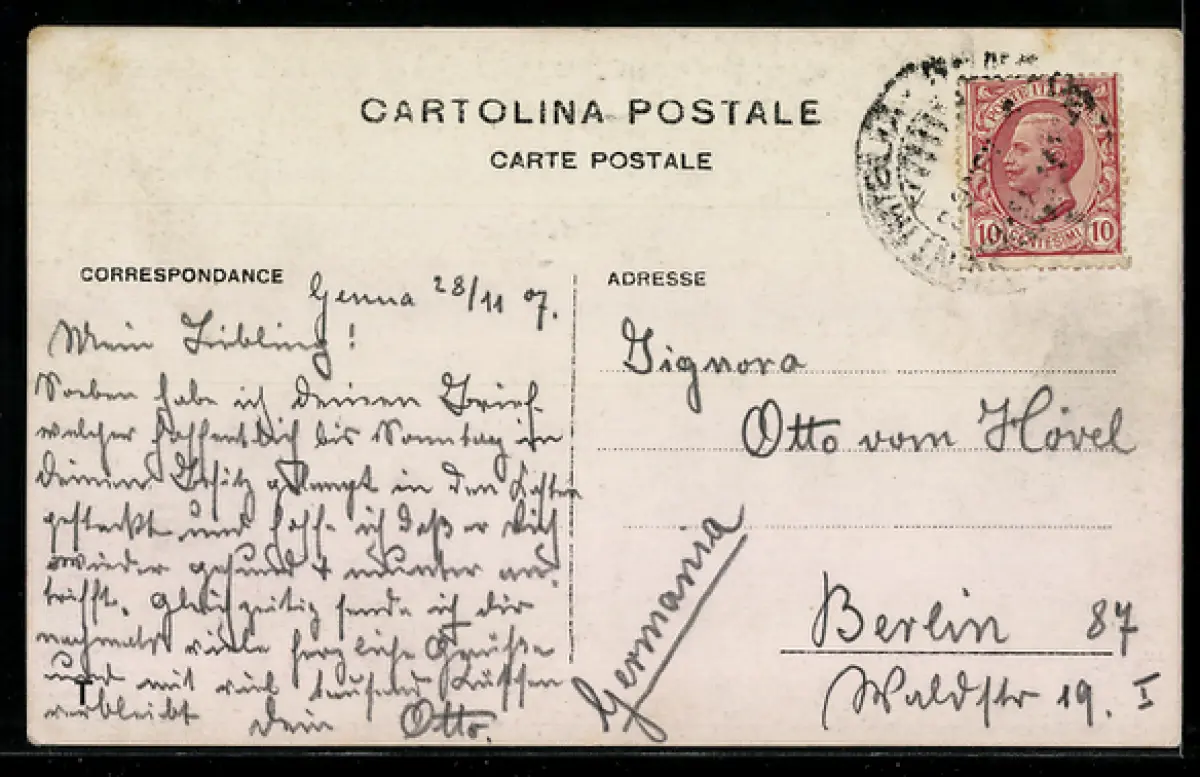 CARTOLINA POSTALE
CARTE POSTALE
POSTE ITAL
10 CENTESIMI 10
CORRESPONDANCE
Genua 28/11 07.
Mein Liebling!
Soeben habe ich deinen Brief
welcher hoffentlich bis Sonntag in
deinen Besitz gelangt in den Kasten
gesteckt und hoffe ich daß er Dich
wieder gesund + munter an-
trifft. Gleichzeitig sende ich dir
nochmals viele herzliche Grüße
und mit viel tausend Küssen
verbleibt Dein Otto.
ADRESSE
Signora
Otto vom Hövel
Germania
Berlin 87
Waldstr 19. I